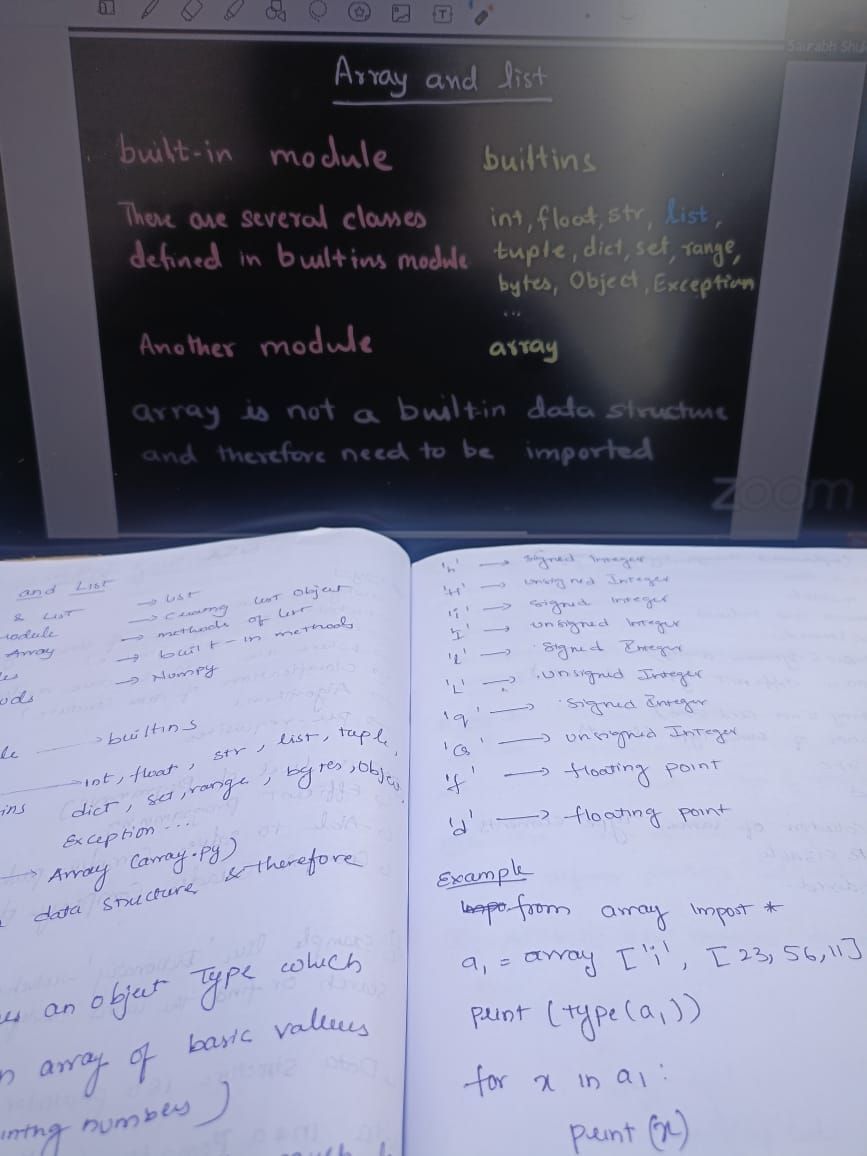 Saurabh Shu
Array and list
built-in module builtins
There are several classes int, float, str, list,
defined in builtins module tuple, dict, set, range,
bytes, Object, Exception
...
Another module array
array is not a built-in data structure
and therefore need to be imported
zoom
and List
& List → List
module → list Object
Array → methods of list
→ built-in methods
ods → Numpy
le → builtins
→ int, float, str, list, tuple,
ins dict, set, range, bytes, Objec
Exception ...
→ Array (array.py)
data structure & therefore
es an object Type which
n array of basic values
inting numbers)
'h' → signed Integer
'H' → unsigned Integer
'i' → signed integer
'I' → unsigned Integer
'l' → signed Integer
'L' → unsigned Integer
'q' → signed Integer
'Q' → unsigned Integer
'f' → floating point
'd' → floating point
Example
from array Import *
a1 = array ['i', [23, 56, 11]
print (type(a1))
for x in a1:
print (x)